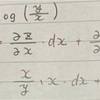 og (y/x)
= ∂z/∂x · dx + ∂
x/y · x · dx +